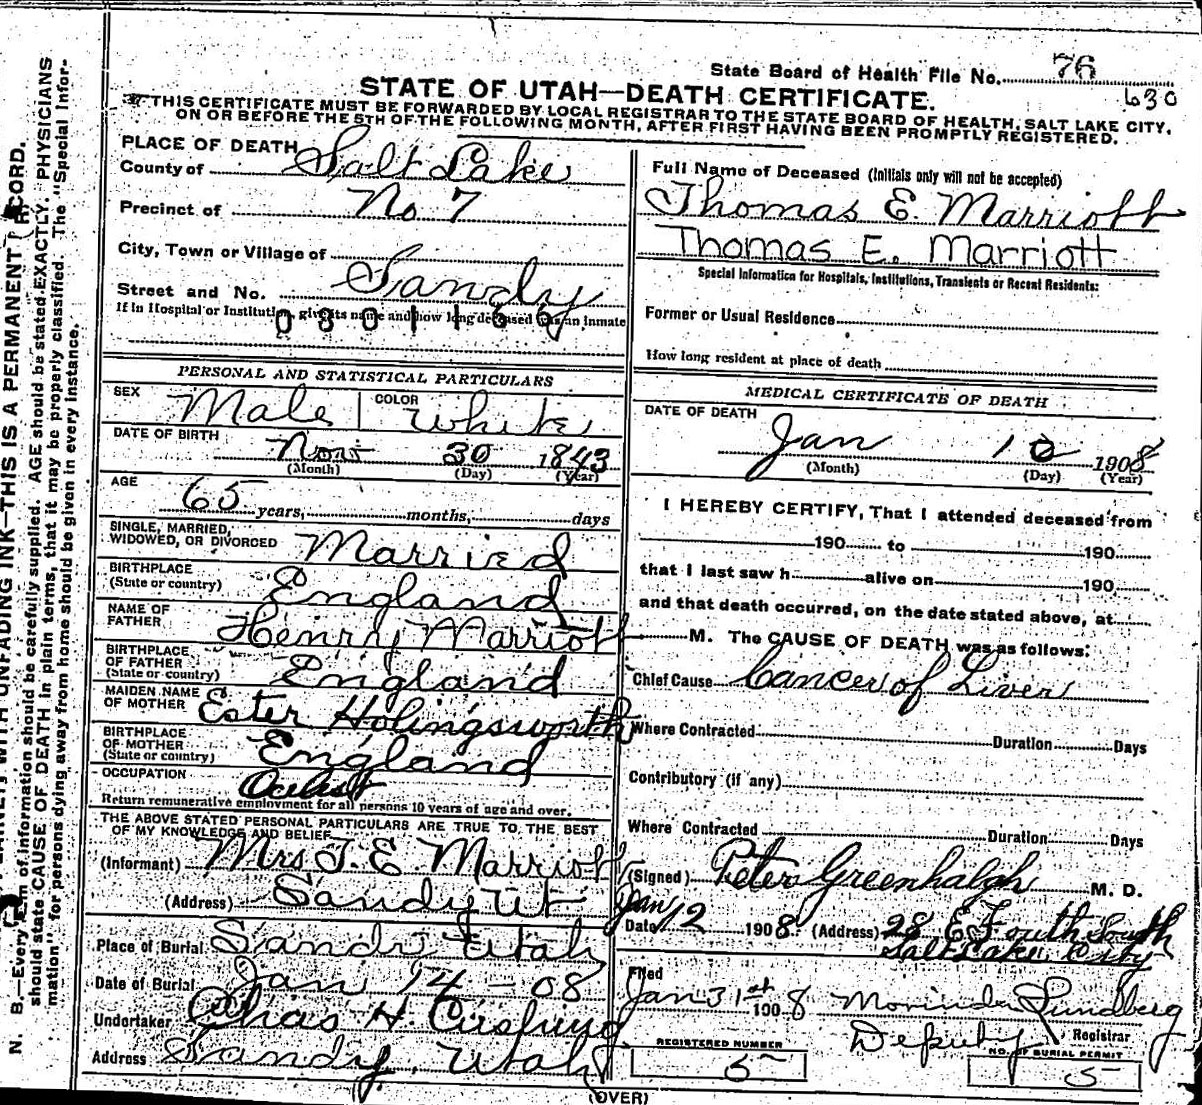 State Board of Health File No. 76
630
STATE OF UTAH—DEATH CERTIFICATE.
THIS CERTIFICATE MUST BE FORWARDED BY LOCAL REGISTRAR TO THE STATE BOARD OF HEALTH, SALT LAKE CITY,
ON OR BEFORE THE 5TH OF THE FOLLOWING MONTH, AFTER FIRST HAVING BEEN PROMPTLY REGISTERED.
PLACE OF DEATH
County of Salt Lake
Precinct of No 7
City, Town or Village of
Street and No. Sandy
If in Hospital or Institution, give its name and how long deceased was an inmate
0801166
PERSONAL AND STATISTICAL PARTICULARS
SEX Male COLOR White
DATE OF BIRTH Nov 30 1843
(Month) (Day) (Year)
AGE 65 years, months, days
SINGLE, MARRIED,
WIDOWED, OR DIVORCED Married
BIRTHPLACE
(State or country) England
NAME OF
FATHER Henry Marriott
BIRTHPLACE
OF FATHER
(State or country) England
MAIDEN NAME
OF MOTHER Ester Holingsworth
BIRTHPLACE
OF MOTHER
(State or country) England
OCCUPATION
Return remunerative employment for all persons 10 years of age and over.
THE ABOVE STATED PERSONAL PARTICULARS ARE TRUE TO THE BEST
OF MY KNOWLEDGE AND BELIEF
(Informant) Mrs T. E Marriott
(Address) Sandy Ut
Place of Burial Sandy Utah
Date of Burial Jan 14 - 08
Undertaker Chas H.
Address Sandy, Utah
Full Name of Deceased (Initials only will not be accepted)
Thomas E. Marriott
Thomas E. Marriott
Special Information for Hospitals, Institutions, Transients or Recent Residents:
Former or Usual Residence
How long resident at place of death
MEDICAL CERTIFICATE OF DEATH
DATE OF DEATH
Jan 12 1908
(Month) (Day) (Year)
I HEREBY CERTIFY, That I attended deceased from
190 to 190
that I last saw h alive on 190
and that death occurred, on the date stated above, at
M. The CAUSE OF DEATH was as follows:
Chief Cause Cancer of Liver
Where Contracted Duration Days
Contributory (if any)
Where Contracted Duration Days
(Signed) Peter Greenhalgh M. D.
Date Jan 12 1908 (Address) 28 E Fourth South
Salt Lake City
Filed
Jan 31st 1908 Sundberg
Deputy Registrar
REGISTERED NUMBER
5
NO. OF BURIAL PERMIT
5
(OVER)
WITH UNFADING INK—THIS IS A PERMANENT RECORD.
N. B.—Every item of information should be carefully supplied. AGE should be stated EXACTLY. PHYSICIANS
should state CAUSE OF DEATH in plain terms, that it may be properly classified. The "Special Infor-
mation" for persons dying away from home should be given in every instance.